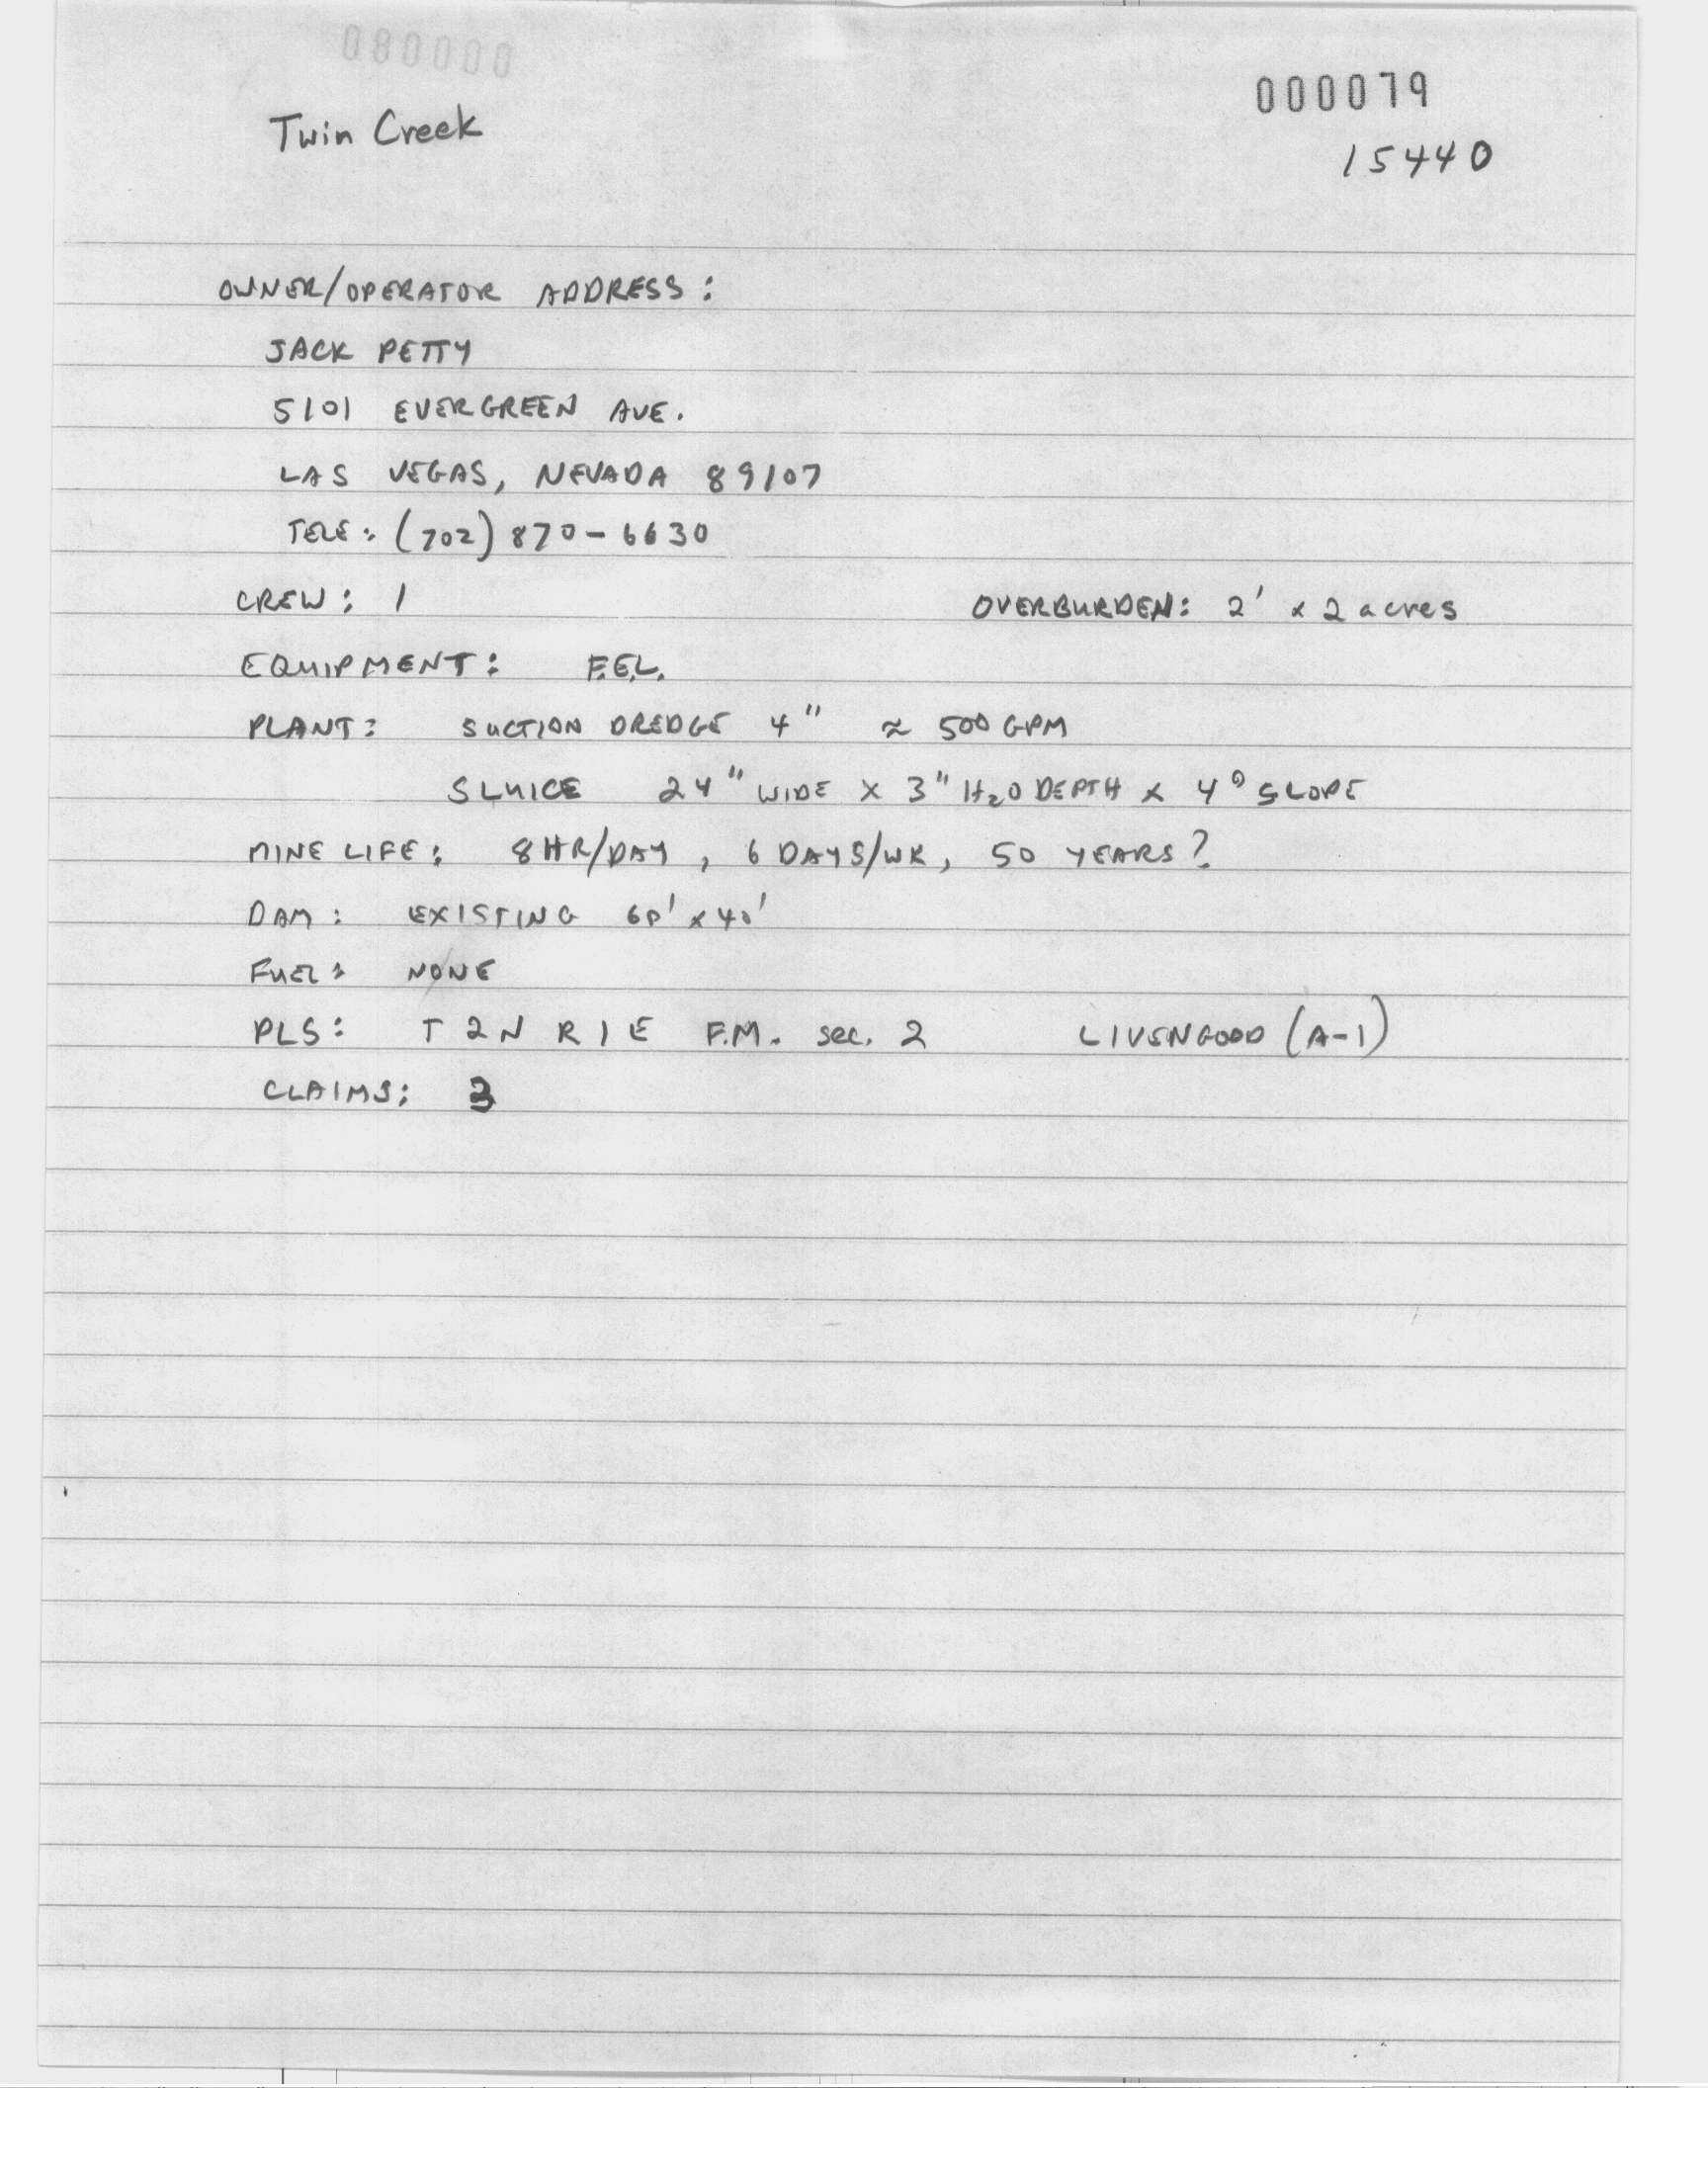 000080
000079
Twin Creek
15440
OWNER/OPERATOR ADDRESS:
JACK PETTY
5101 EVERGREEN AVE.
LAS VEGAS, NEVADA 89107
TELE: (702) 870-6630
CREW: 1 OVERBURDEN: 2' x 2 acres
EQUIPMENT: F.E.L.
PLANT: SUCTION DREDGE 4" ≈ 500 GPM
SLUICE 24" WIDE X 3" H2O DEPTH x 4° SLOPE
MINE LIFE: 8 HR/DAY, 6 DAYS/WK, 50 YEARS?
DAM: EXISTING 60' x 40'
FUEL: NONE
PLS: T 2 N R 1 E F.M. sec. 2 LIVENGOOD (A-1)
CLAIMS: 3